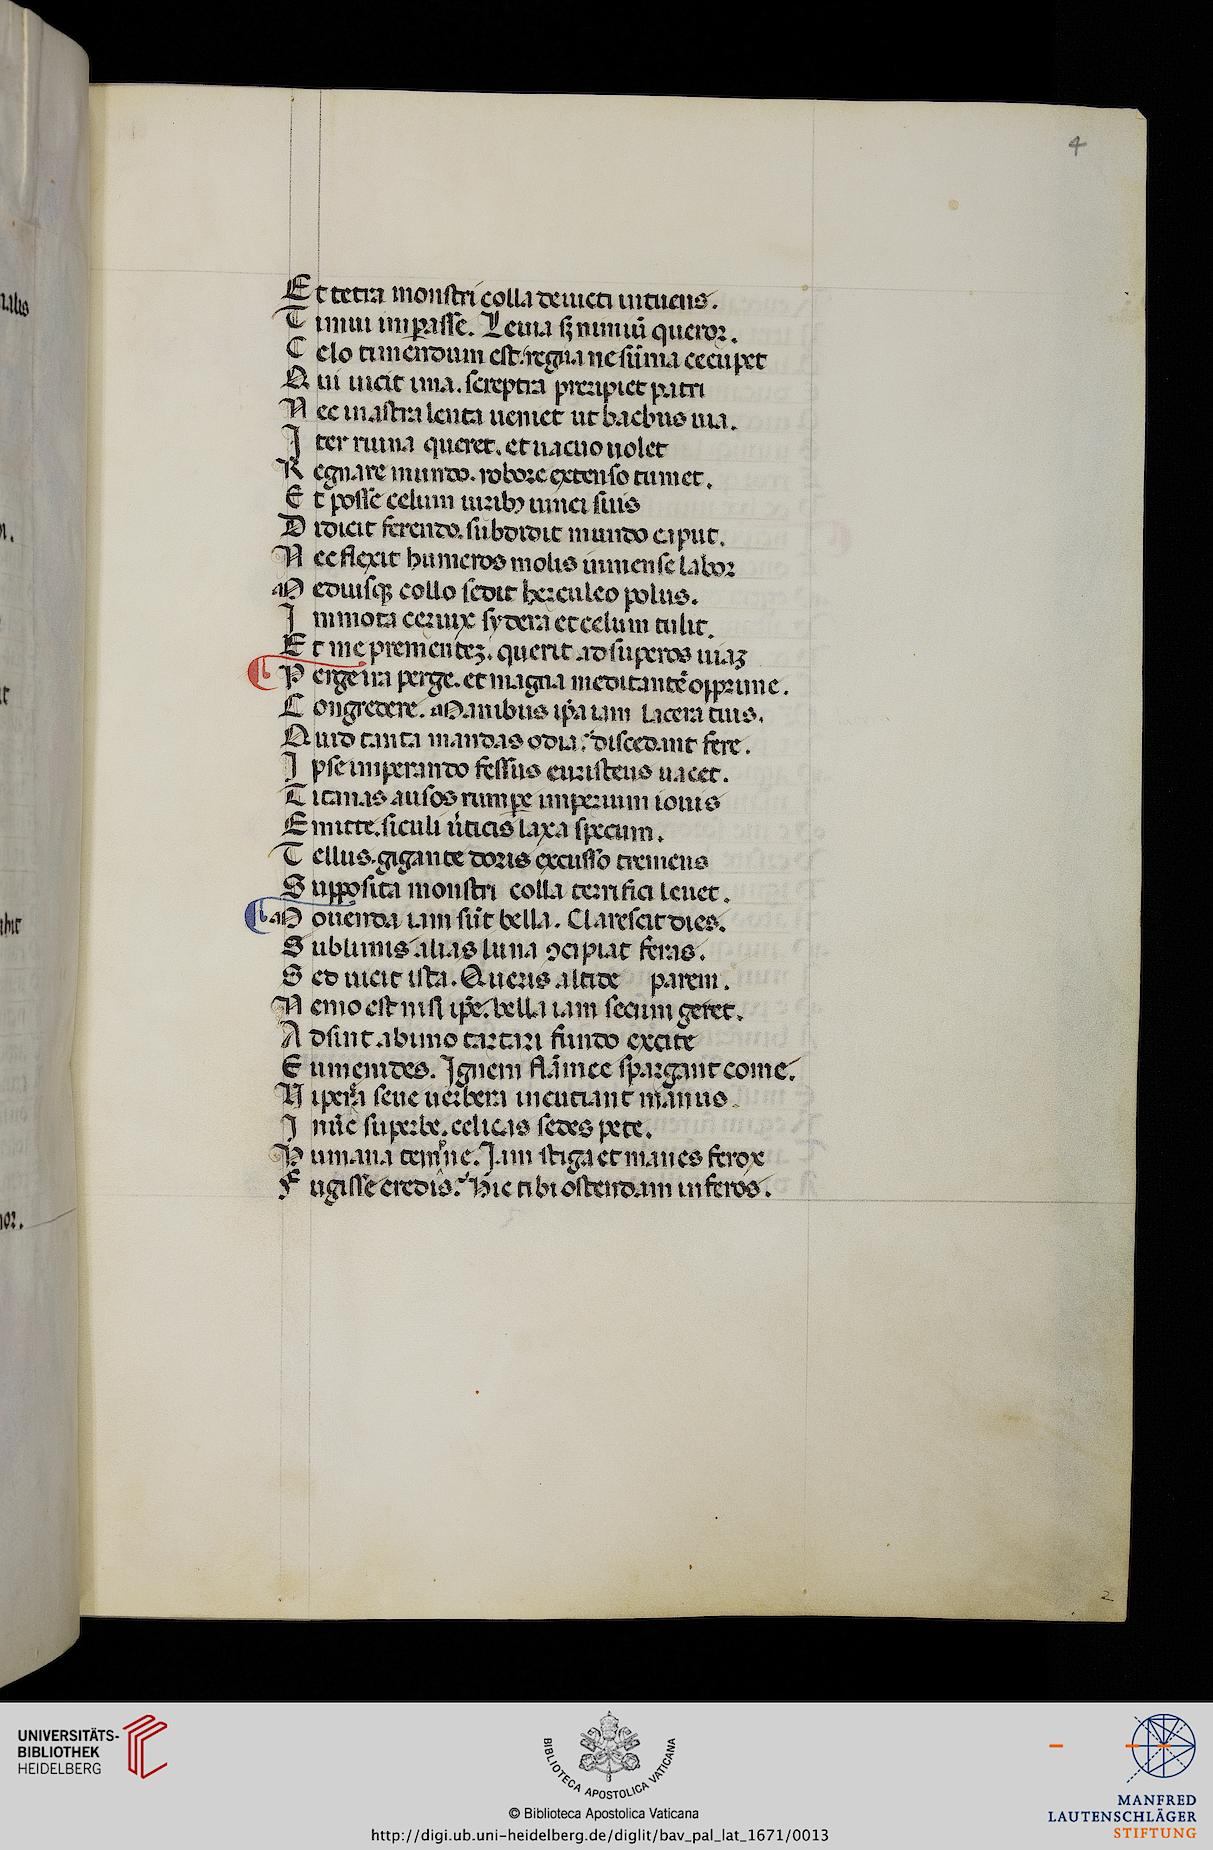 4
Et tetra monstri colla deuicti intuens.
Timui imꝑasse. Leuia sꝫ nimiū queror.
Celo timendum est. regna ne sūma occupet
Qui uicit ima. screptra preripiet patri
Nec in astra lenta ueniet ut bachus uia.
Iter ruina queret. et uacuo uolet
Regnare mundo. robore extenso tumet.
Et posse celum uiribꝫ uinci suis
Didicit ferendo. subdidit mundo caput.
Nec flexit humeros molis inmense labor
Mediusqꝫ collo sedit herculeo polus.
Inmota ceruix sydera et celum tulit.
Et me prementeꝫ. querit ad superos uiaꝫ
Perge ira perge. et magna meditantē opprime.
Congredere. Manibus ip̄a iam lacera tuis.
Quid tanta mandas odia? discedant fere.
Ipse imperando fessus euristeus uacet.
Titanas ausos rumpe imperium iouis
Emitte. siculi ūticis laxa specum.
Tellus gigante doris excusso tremens
Supposita monstri colla terrifici leuet.
Mouenda iam sūt bella. Clarescit dies.
Sublimis alias luna ꝯcipiat feras.
Sed uicit ista. Queris alcide parem.
Nemo est nisi ip̄e. bella iam secum geret.
Adsint ab imo tartari fundo excite
Eumenides. Ignem flāmee spargant come.
Vipera seue uerbera incutiant manus.
I nūc superbe. celicas sedes pete.
Humana temne. Iam stiga et manes ferox
Fugisse credis? Hic tibi ostendam inferos.
2
UNIVERSITÄTS-
BIBLIOTHEK
HEIDELBERG
BIBLIOTECA APOSTOLICA VATICANA
© Biblioteca Apostolica Vaticana
http://digi.ub.uni-heidelberg.de/diglit/bav_pal_lat_1671/0013
MANFRED
LAUTENSCHLÄGER
STIFTUNG